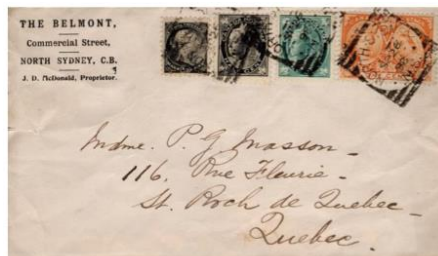 THE BELMONT,
Commercial Street,
NORTH SYDNEY, C.B.
J. D. McDonald, Proprietor.
Mdme. P. G. Masson -
116, Rue Fleurie -
St. Roch de Quebec -
Quebec.